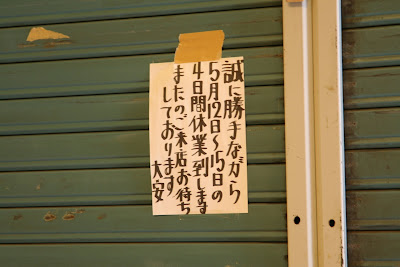 誠に勝手ながら
5月12日〜15日の
4日間休業到します
またのご来店お待ち
しております
大安